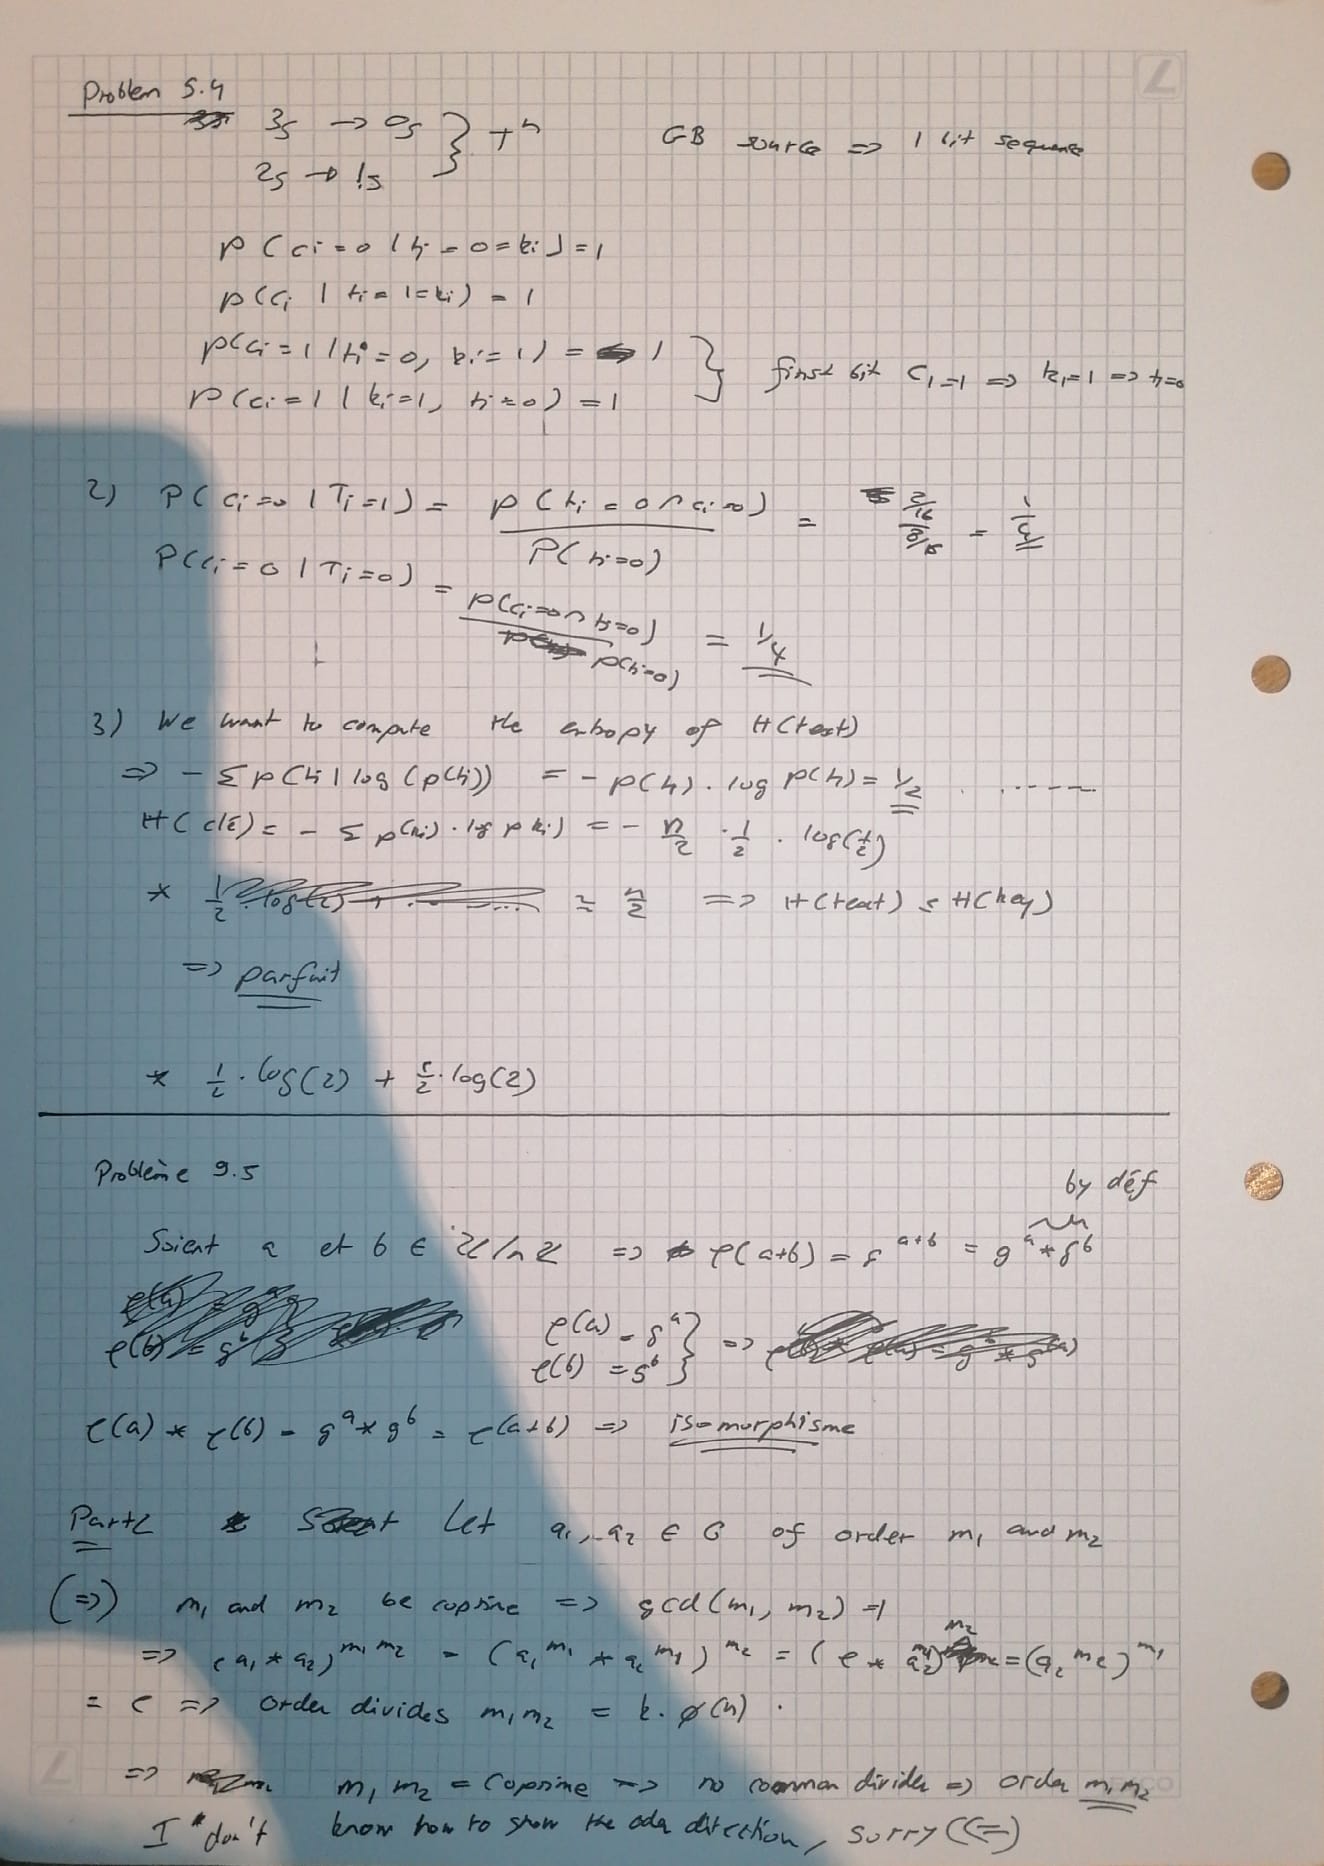 Problem 5.4
3s → 0s } + n
2s → 1s
GB source => 1 bit sequence
p(ci = 0 | ti = 0 = ki) = 1
p(ci | ti = 1 = ki) = 1
p(ci = 1 | ti = 0, ki = 1) = 1
p(ci = 1 | ki = 1, ti = 0) = 1
} first bit c1 = 1 => k1 = 1 => t = 0
2) P(ci = 0 | Ti = 1) = p(ti = 0 ∩ ci = 0) / P(ti = 0) = 2/16 / 8/16 = 1/4
P(ci = 0 | Ti = 0) = p(ci = 0 ∩ ti = 0) / p(ti = 0) = 1/4
3) We want to compute the entropy of H(text)
=> - Σ p(ti) log (p(ti)) = - p(ti) . log p(ti) = 1/2 . ......
H(clé) = - Σ p(ki) . log p(ki) = - n/2 . 1/2 . log(1/2)
* = n/2 => H(text) ≤ H(key)
=> parfait
* 1/2 . log(2) + 5/2 . log(2)
Problème 9.5
by déf
Soient a et b ∈ Z/nZ => φ(a+b) = g^{a+b} = g^a * g^b
φ(a) = g^a
φ(b) = g^b } =>
φ(a) * φ(b) = g^a * g^b = φ(a+b) => isomorphisme
Part 2 Let a1, a2 ∈ G of order m1 and m2
(=>) m1 and m2 be coprime => gcd(m1, m2) = 1
=> (a1 * a2)^{m1 m2} = (a1^{m1} * a2^{m1})^{m2} = (e * a2^{m1})^{m2} = (a2^{m2})^{m1}
= e => order divides m1m2 = k . φ(n) .
=> m1 m2 = coprime => no common divider => order m1 m2
I don't know how to show the oder direction, sorry (<=)